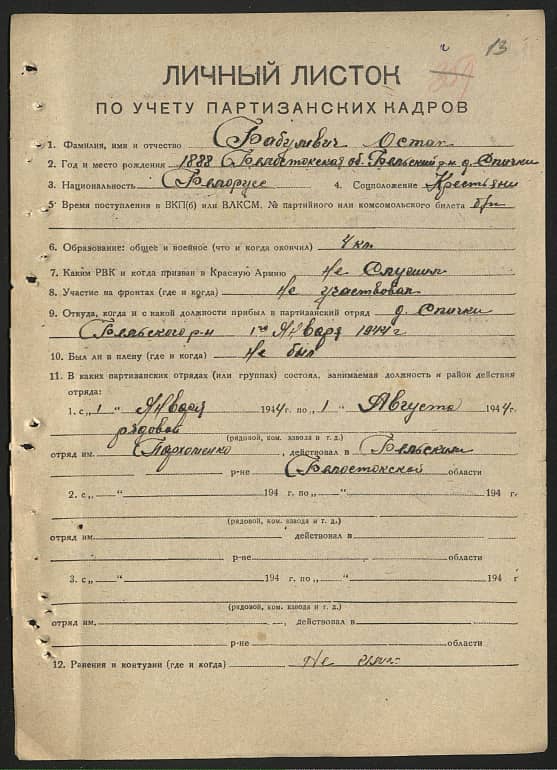 13
ЛИЧНЫЙ ЛИСТОК
ПО УЧЕТУ ПАРТИЗАНСКИХ КАДРОВ
1. Фамилия, имя и отчество Бабулевич Остап
2. Год и место рождения 1888 Белостокская об. Бельский р-н д. Спички
3. Национальность Белорусс 4. Соцположение Крестьяни
5. Время поступления в ВКП(б) или ВЛКСМ, № партийного или комсомольского билета б/п
6. Образование: общее и военное (что и когда окончил) 4 кл.
7. Каким РВК и когда призван в Красную Армию Не Служил
8. Участие на фронтах (где и когда) Не участвовал
9. Откуда, когда и с какой должности прибыл в партизанский отряд д. Спички
Бельского р-н 1го Января 1944 г
10. Был ли в плену (где и когда) Не был
11. В каких партизанских отрядах (или группах) состоял, занимаемая должность и район действия
отряда:
1. с „ 1 " Января 1944 г. по „ 1 " Августа 1944 г.
рядовой
(рядовой, ком. взвода и т. д.)
отряд им. Пархоменко, действовал в Бельским
р-не Белостокской области
2. с „ — " 194 г. по „ — " 194 г.
(рядовой, ком. взвода и т. д.)
отряд им. действовал в
р-не области
3. с „ — " 194 г. по „ — " 194 г
(рядовой, ком. взвода и т. д.)
отряд им. , действовал в
р-не области
12. Ранения и контузии (где и когда) Не